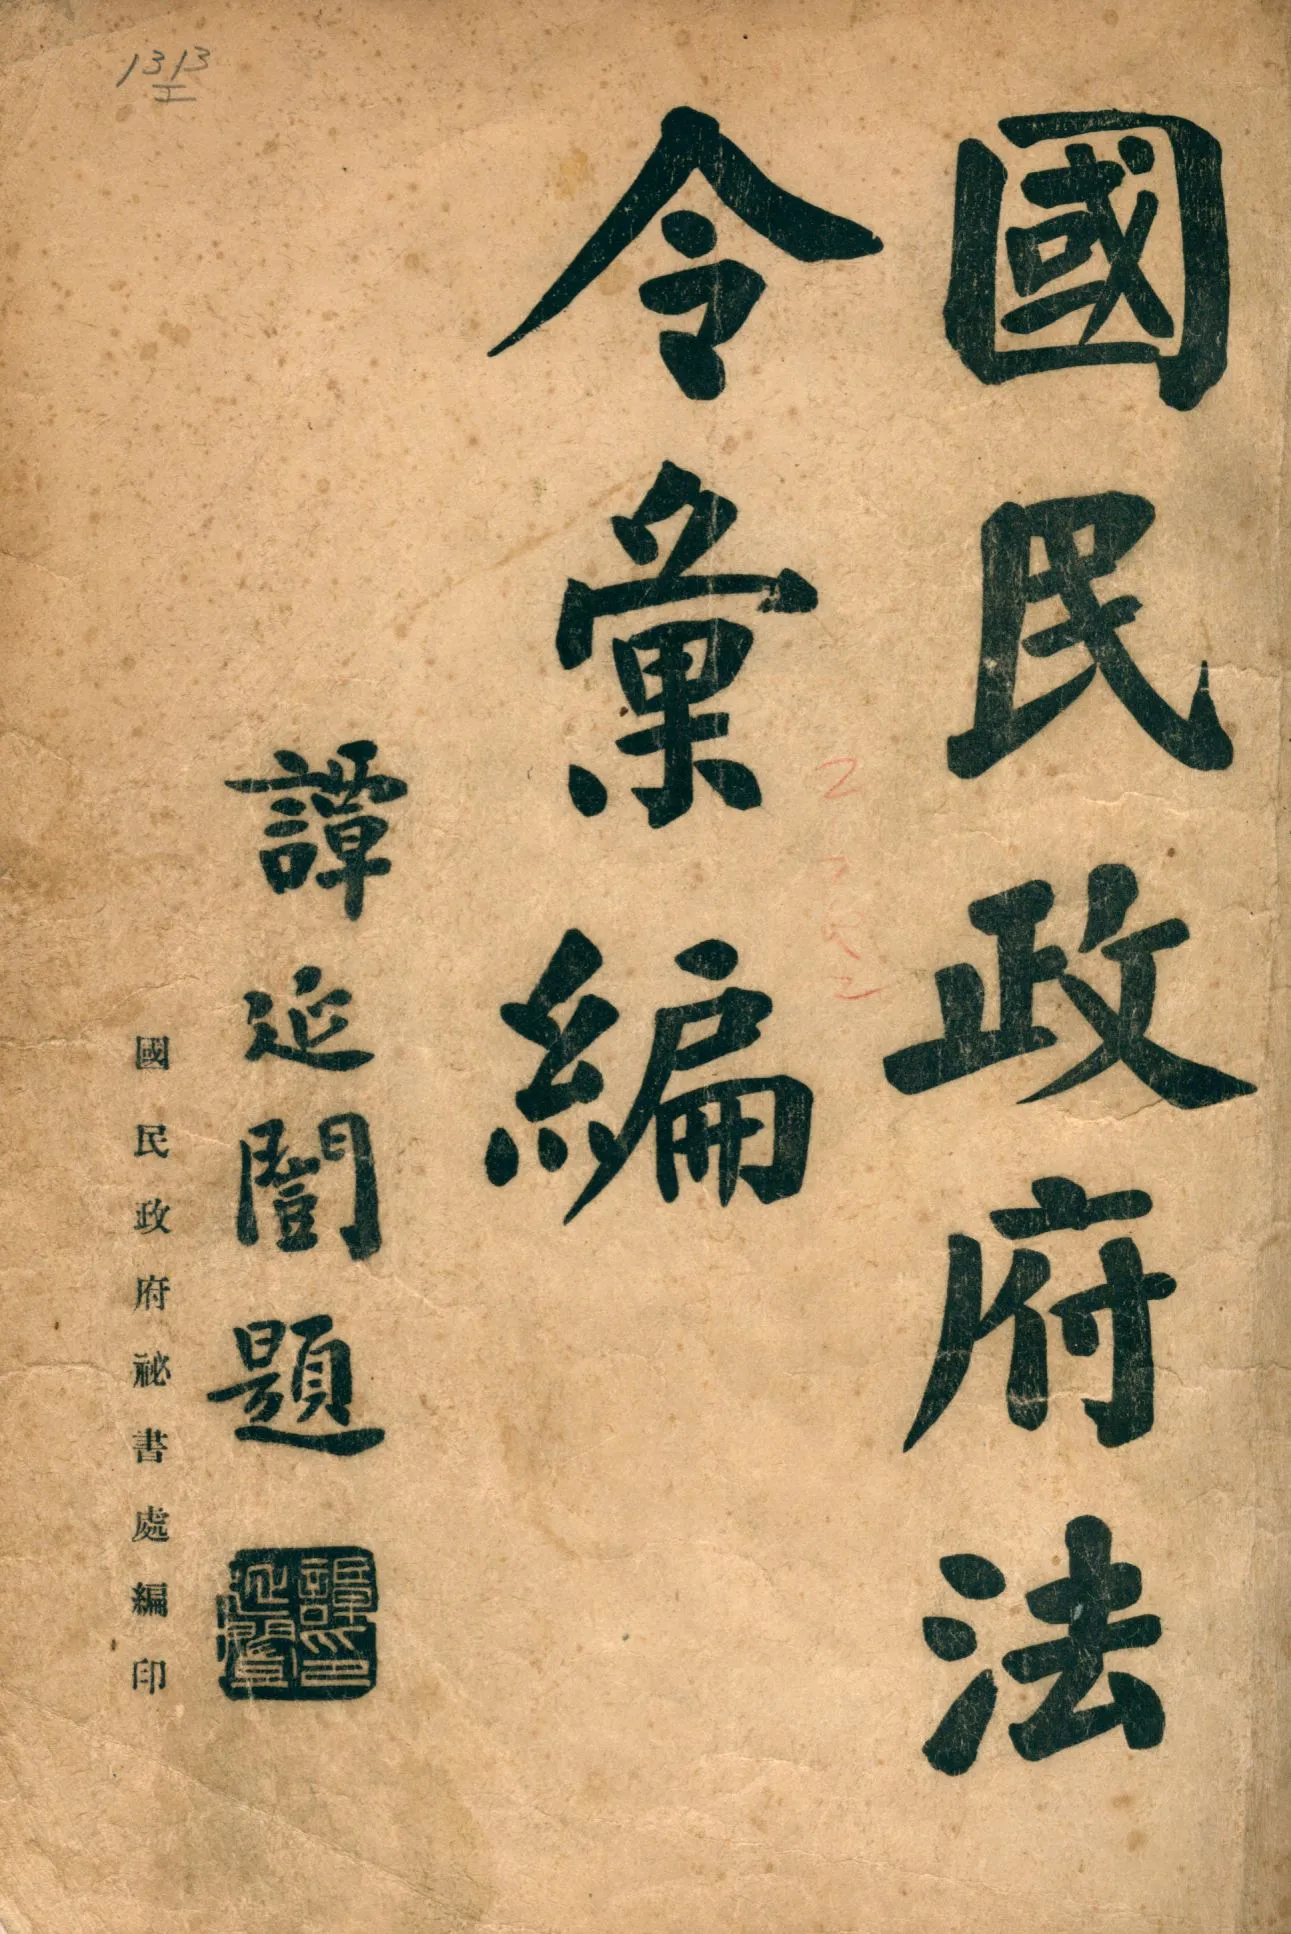 國民政府法
令彙編
譚延闓題
譚延闓印
國民政府祕書處編印
1313
工